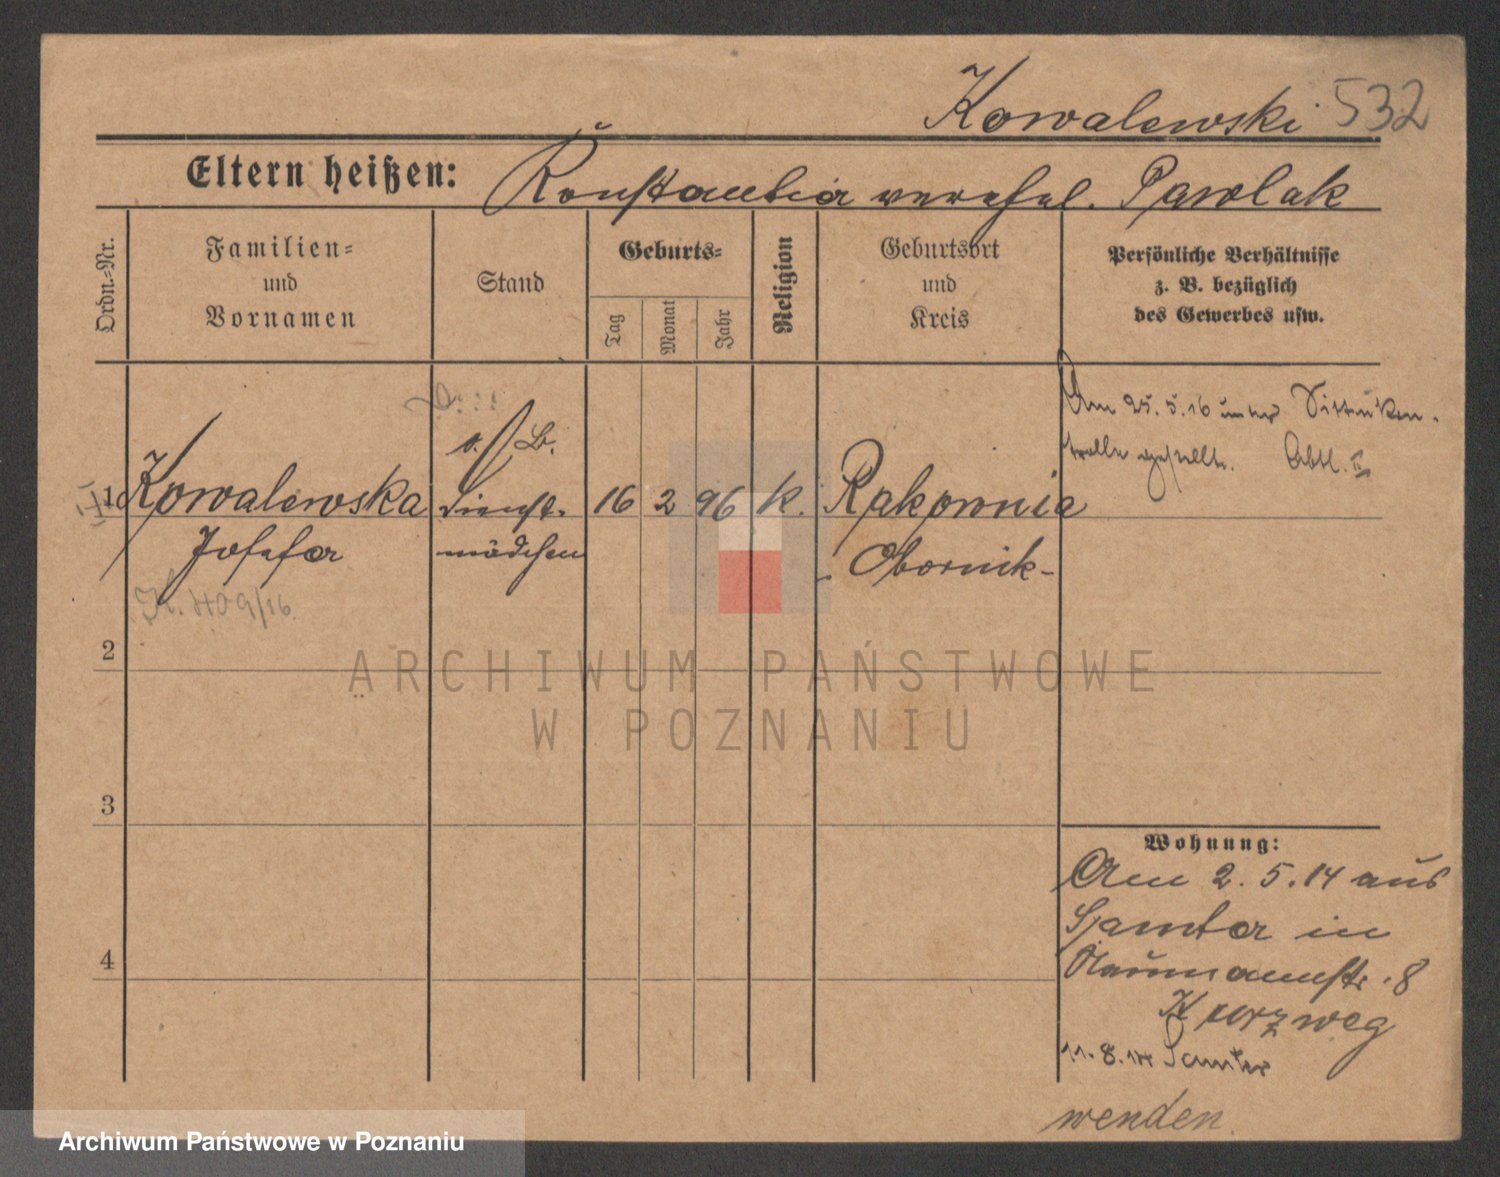 Kowalewski 532
Eltern heißen: Konstantia verehel. Pawlak
Ordn.-Nr.
Familien-
und
Vornamen
Stand
Geburts-
Tag
Monat
Jahr
Religion
Geburtsort
und
Kreis
Persönliche Verhältnisse
z. B. bezüglich
des Gewerbes usw.
Am 25.5.16 unter Sittenkon-
trolle gestellt. Abtl. II
1 Kowalewska Dienst- 16 2 96 k. Rakownia
Josefa mädchen Obornik-
K. 409/16.
2
3
4
Wohnung:
Am 2.5.14 aus
Samter in
Naumannstr. 8
Kurzweg
11.8.14 Samter
wenden.
ARCHIWUM PAŃSTWOWE
W POZNANIU
Archiwum Państwowe w Poznaniu